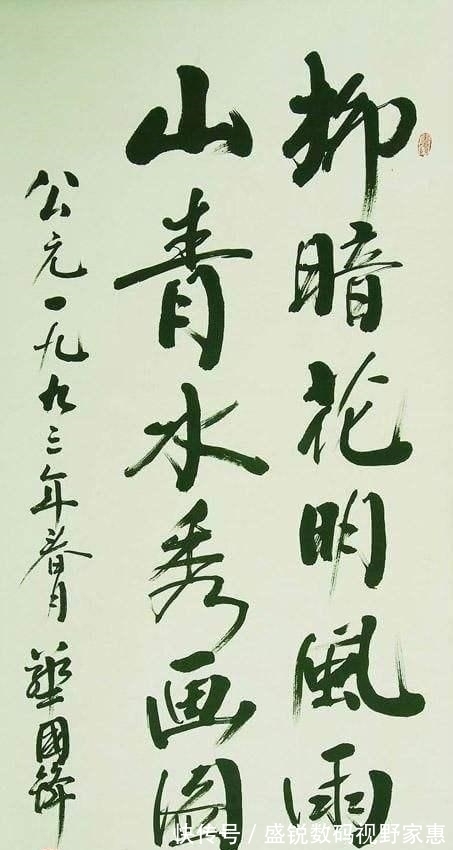 柳暗花明風雨
山青水秀画圖
公元一九九三年春月
華國鋒
快传号／盛锐数码视野家惠